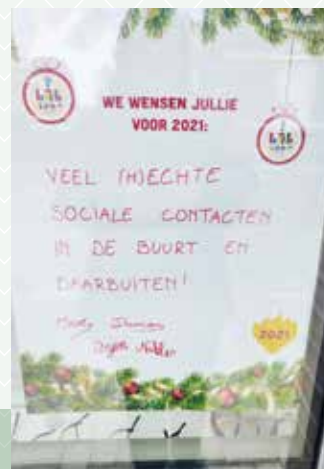 WE WENSEN JULLIE
VOOR 2021:
VEEL (H)ECHTE
SOCIALE CONTACTEN
IN DE BUURT EN
DAARBUITEN!
2021